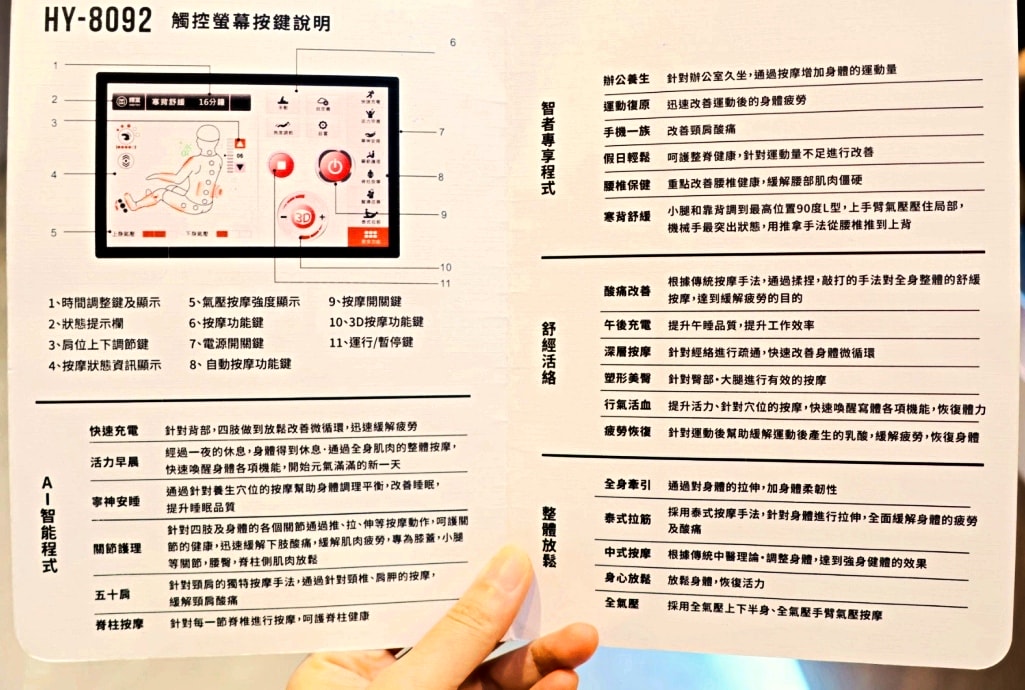 HY-8092 觸控螢幕按鍵說明
1
2
3
4
5
6
7
8
9
10
11
寒背舒緩 16分鐘
06
3D
- +
上身氣壓
下身氣壓
1、時間調整鍵及顯示
2、狀態提示欄
3、肩位上下調節鍵
4、按摩狀態資訊顯示
5、氣壓按摩強度顯示
6、按摩功能鍵
7、電源開關鍵
8、自動按摩功能鍵
9、按摩開關鍵
10、3D按摩功能鍵
11、運行/暫停鍵
AI智能程式
快速充電 針對背部,四肢做到放鬆改善微循環,迅速緩解疲勞
活力早晨 經過一夜的休息,身體得到休息·通過全身肌肉的整體按摩,
快速喚醒身體各項機能,開始元氣滿滿的新一天
寧神安睡 通過針對養生穴位的按摩幫助身體調理平衡,改善睡眠,
提升睡眠品質
關節護理 針對四肢及身體的各個關節通過推、拉、伸等按摩動作,呵護關
節的健康,迅速緩解下肢酸痛,緩解肌肉疲勞,專為膝蓋,小腿
等關節,腰臀,脊柱側肌肉放鬆
五十肩 針對頸肩的獨特按摩手法,通過針對頸椎、肩胛的按摩,
緩解頸肩酸痛
脊柱按摩 針對每一節脊椎進行按摩,呵護脊柱健康
智者專享程式
辦公養生 針對辦公室久坐,通過按摩增加身體的運動量
運動復原 迅速改善運動後的身體疲勞
手機一族 改善頸肩酸痛
假日輕鬆 呵護整脊健康,針對運動量不足進行改善
腰椎保健 重點改善腰椎健康,緩解腰部肌肉僵硬
寒背舒緩 小腿和靠背調到最高位置90度L型,上手臂氣壓壓住局部,
機械手最突出狀態,用推拿手法從腰椎推到上背
舒經活絡
酸痛改善 根據傳統按摩手法,通過揉捏,敲打的手法對全身整體的舒緩
按摩,達到緩解疲勞的目的
午後充電 提升午睡品質,提升工作效率
深層按摩 針對經絡進行疏通,快速改善身體微循環
塑形美臀 針對臀部·大腿進行有效的按摩
行氣活血 提升活力、針對穴位的按摩,快速喚醒寫體各項機能,恢復體力
疲勞恢復 針對運動後幫助緩解運動後產生的乳酸,緩解疲勞,恢復身體
整體放鬆
全身牽引 通過對身體的拉伸,加身體柔韌性
泰式拉筋 採用泰式按摩手法,針對身體進行拉伸,全面緩解身體的疲勞
及酸痛
中式按摩 根據傳統中醫理論·調整身體,達到強身健體的效果
身心放鬆 放鬆身體,恢復活力
全氣壓 採用全氣壓上下半身、全氣壓手臂氣壓按摩